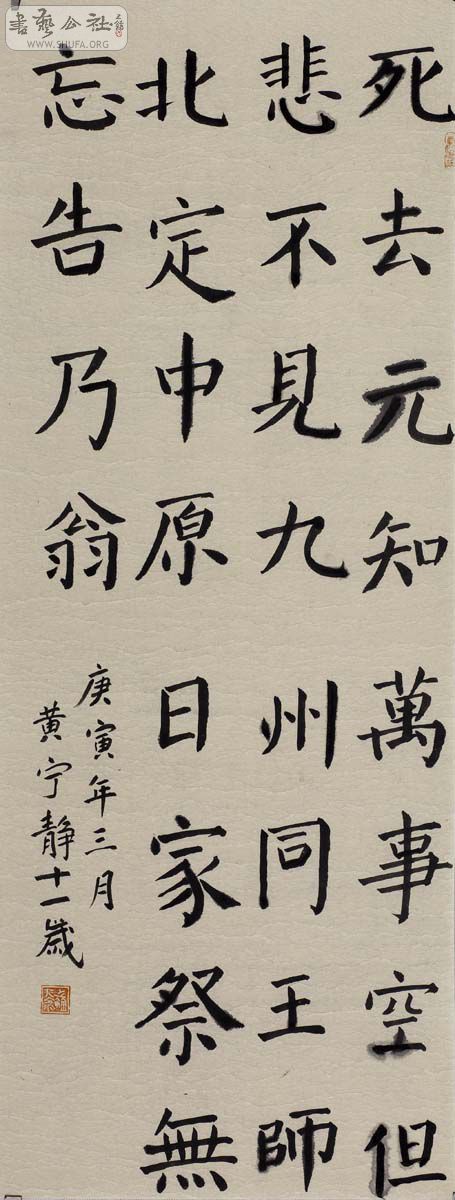 死去元知萬事空但
悲不見九州同王師
北定中原日家祭無
忘告乃翁
庚寅年三月
黄宁静十一歲
書藝公社
WWW.SHUFA.ORG